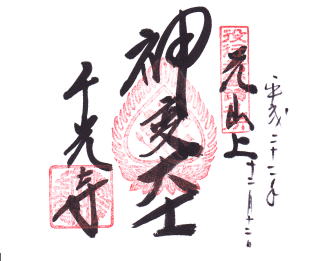 平成二十二年
十二月十二日
元山上
神変大士
千光寺